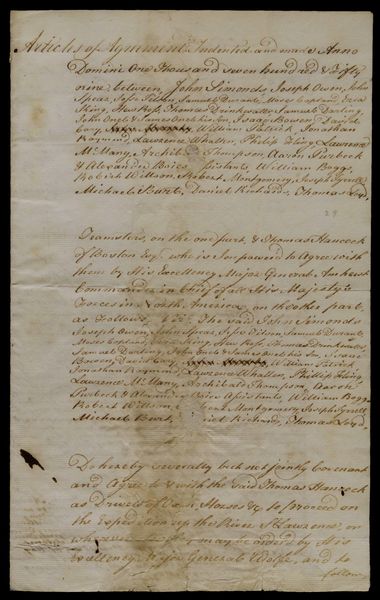 Articles of Agreement Indented and made Anno
Domini One Thousand and seven hundred & Fifty
nine, between, John Simonds, Joseph Owen, John
Spear, Samuel Durant, Moses
King, Hew Ross, Thomas Drinkwater, Samuel Darling,
John Ongle & James Ongle his son, Isaac Bowen, David
William Patrick, Jonathan
Raymond, Lawrence Whallen, Philip King, Lawrence
McMany, Thompson, Aaron Purbeck
& Alexander William Boggs
Robert Willson, Robert Montgomery, Joseph Tyrrell
Michael Burt, Daniel Richards, Thomas Loyd,
29
Teamsters, on the one part, & Thomas Hancock
of Boston Esqr. who is Impowered to Agree with
them by His Excellency Major General Amherst
Commander in Chief of all His Majestys
Forces in North America, on the other part,
as follows, Vizt. The said John Simonds,
Joseph Owen, John Spear, Samuel Durant,
Moses King, Hew Ross, Thomas Drinkwater,
Samuel Darling, John Ongle his son, Isaac
Bowen, David William Patrick
Jonathan Raymond, Lawrence Whallen, Phillip King,
Lawrence McMany, Archibald Thompson, Aaron
Purbeck & Alexander Assistants, William Boggs
Robert Willson, Montgomery, Joseph Tyrrell
Michael Burt, Richards, Thomas Loyd
Do hereby severally but not jointly Covenant
and Agree to & with the said Thomas Hancock
as Drivers of Oxen, Horses &c. to proceed on
the Expedition up the River St. Lawrence, or
wherever may be ordered by His
Excellency Major General Wolfe, and to
follow